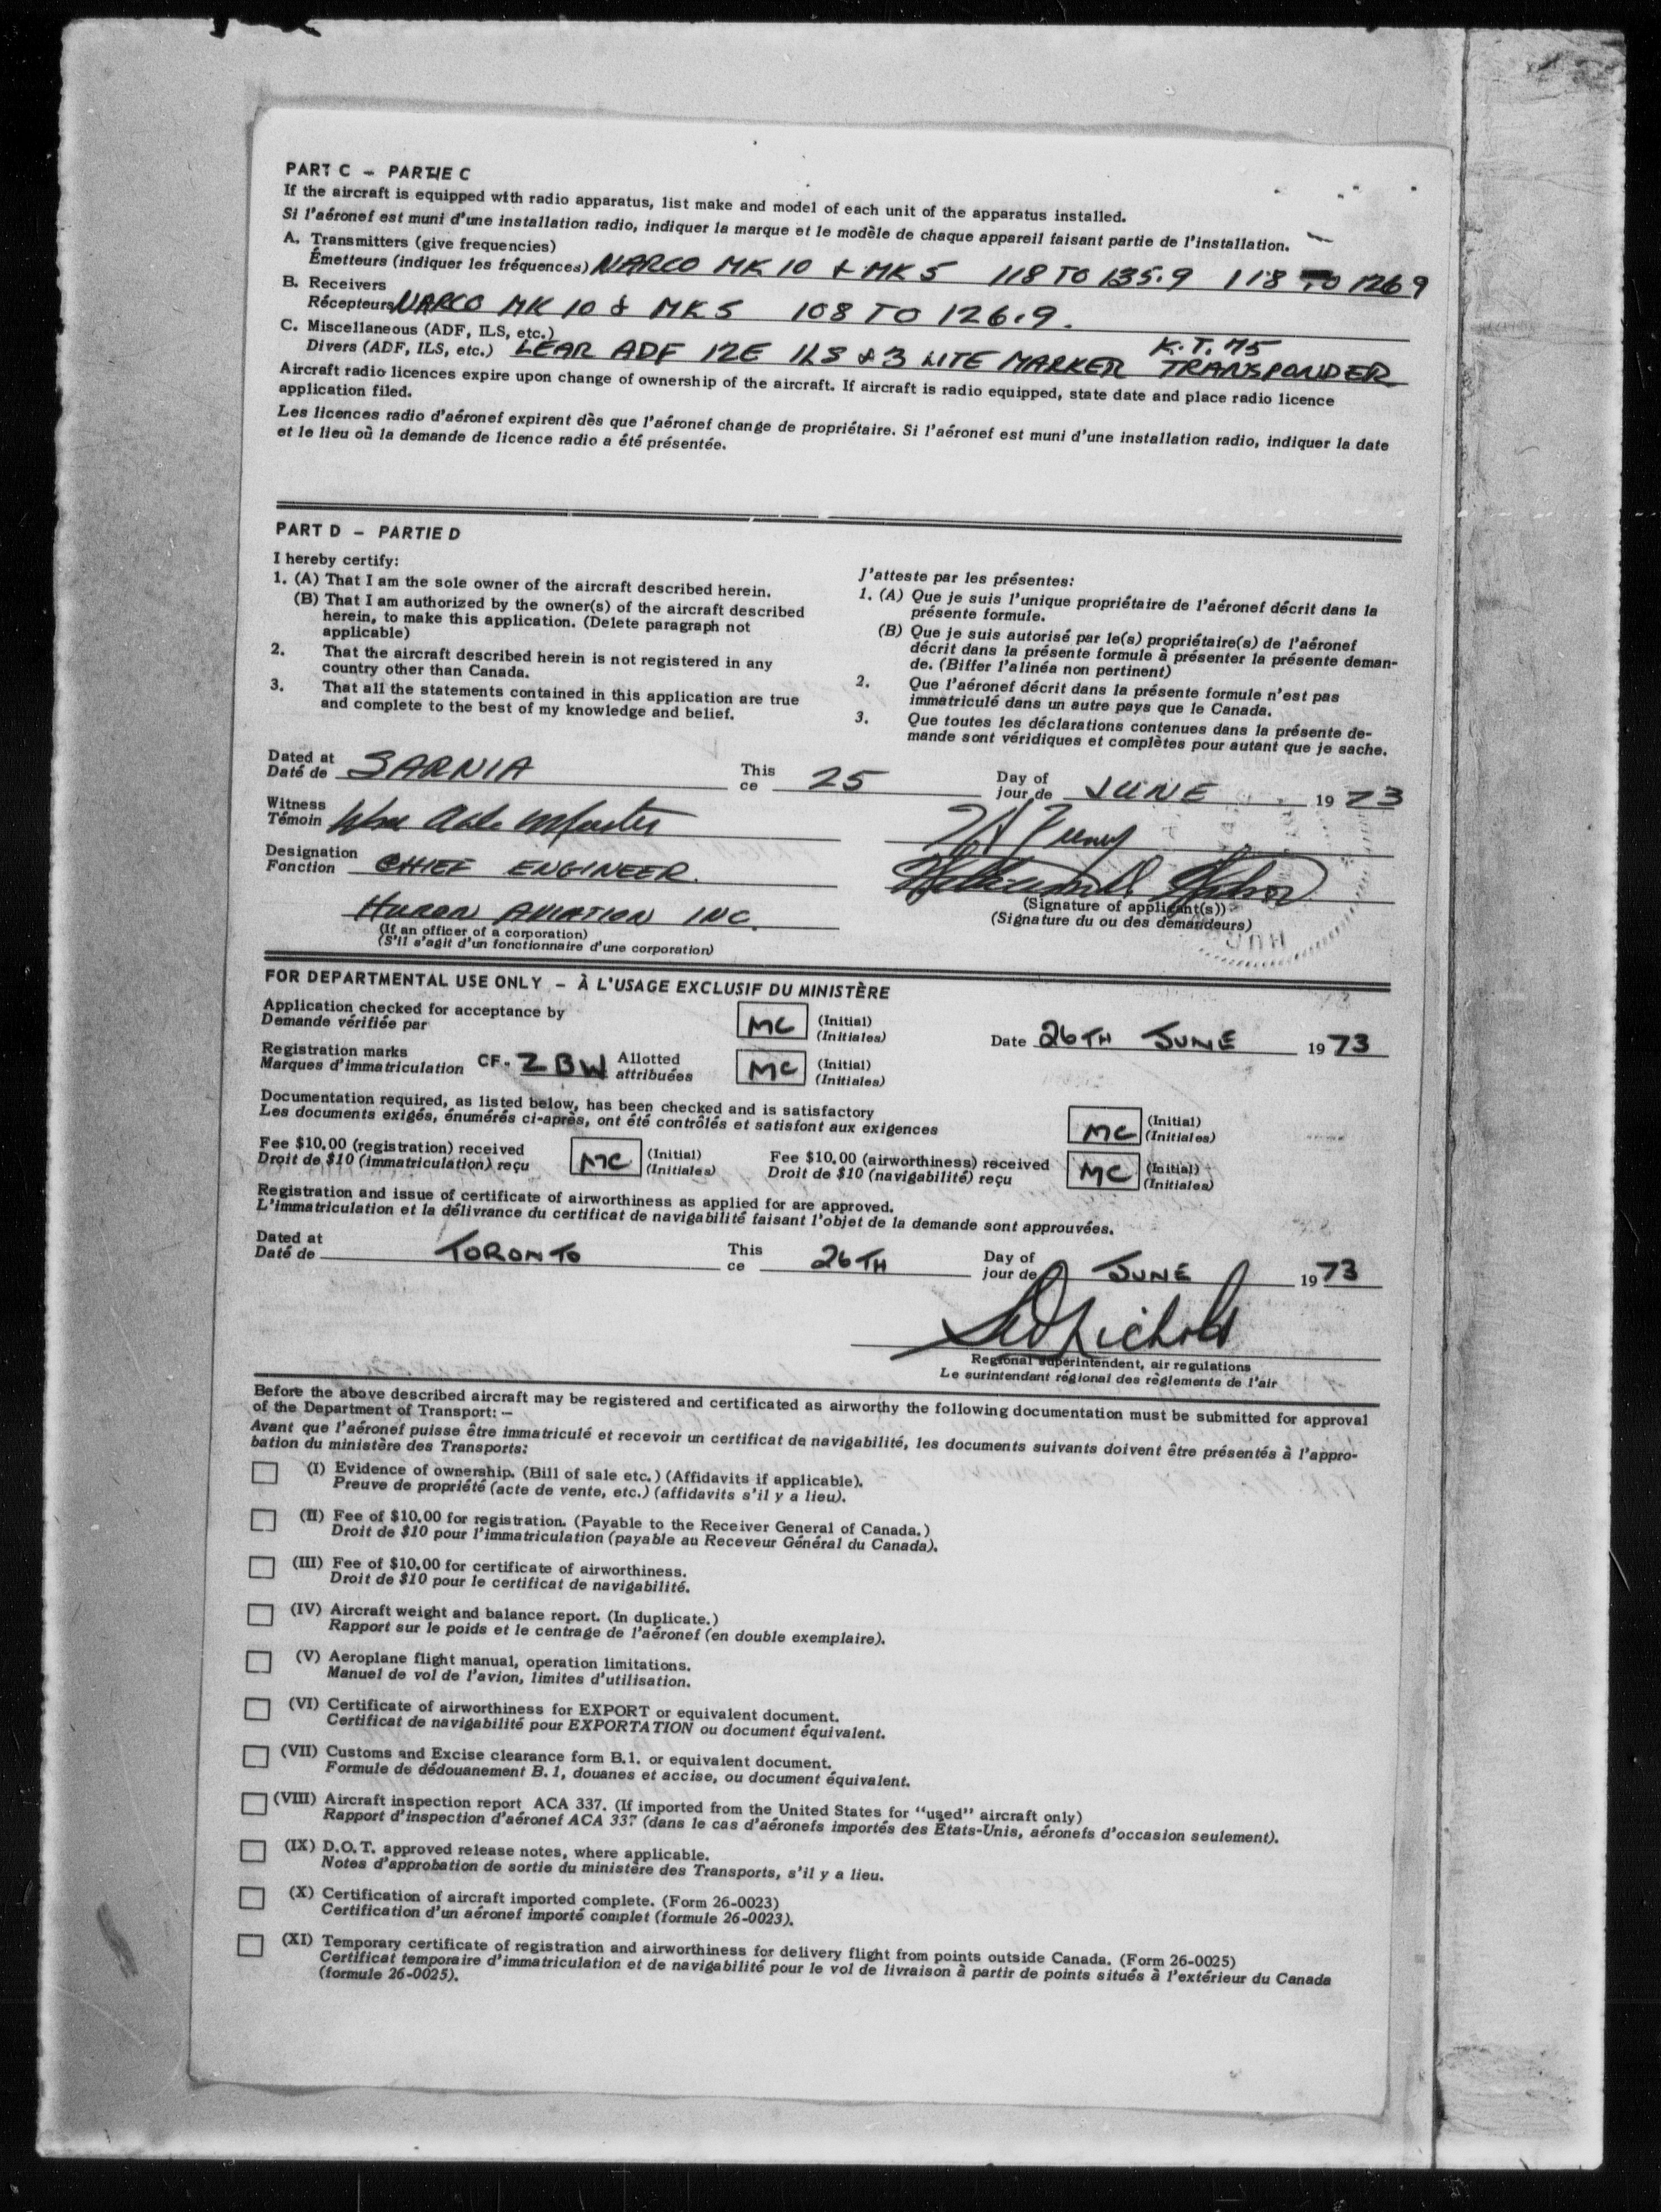 PART C – PARTIE C
If the aircraft is equipped with radio apparatus, list make and model of each unit of the apparatus installed.
Si l'aéronef est muni d'une installation radio, indiquer la marque et le modèle de chaque appareil faisant partie de l'installation.
A. Transmitters (give frequencies)
Émetteurs (indiquer les fréquences) NARCO MK 10 & MK 5 118 TO 135.9 118 TO 126.9
B. Receivers
Récepteurs NARCO MK 10 & MK 5 108 TO 126.9.
C. Miscellaneous (ADF, ILS, etc.) K.T. 75
Divers (ADF, ILS, etc.) LEAR ADF 12E ILS & 3 LITE MARKER TRANSPONDER
Aircraft radio licences expire upon change of ownership of the aircraft. If aircraft is radio equipped, state date and place radio licence
application filed.
Les licences radio d'aéronef expirent dès que l'aéronef change de propriétaire. Si l'aéronef est muni d'une installation radio, indiquer la date
et le lieu où la demande de licence radio a été présentée.
PART D – PARTIE D
I hereby certify:
1. (A) That I am the sole owner of the aircraft described herein.
(B) That I am authorized by the owner(s) of the aircraft described
herein, to make this application. (Delete paragraph not
applicable)
2. That the aircraft described herein is not registered in any
country other than Canada.
3. That all the statements contained in this application are true
and complete to the best of my knowledge and belief.
J'atteste par les présentes:
1. (A) Que je suis l'unique propriétaire de l'aéronef décrit dans la
présente formule.
(B) Que je suis autorisé par le(s) propriétaire(s) de l'aéronef
décrit dans la présente formule à présenter la présente deman-
de. (Biffer l'alinéa non pertinent)
2. Que l'aéronef décrit dans la présente formule n'est pas
immatriculé dans un autre pays que le Canada.
3. Que toutes les déclarations contenues dans la présente de-
mande sont véridiques et complètes pour autant que je sache.
Dated at This Day of
Daté de SARNIA ce 25 jour de JUNE 19 73
Witness
Témoin
Designation
Fonction CHIEF ENGINEER.
HURON AVIATION INC.
(If an officer of a corporation)
(S'il s'agit d'un fonctionnaire d'une corporation)
(Signature of applicant(s))
(Signature du ou des demandeurs)
FOR DEPARTMENTAL USE ONLY – À L'USAGE EXCLUSIF DU MINISTÈRE
Application checked for acceptance by MC (Initial)
Demande vérifiée par (Initiales) Date 26TH JUNE 19 73
Registration marks CF- ZBW Allotted MC (Initial)
Marques d'immatriculation attribuées (Initiales)
Documentation required, as listed below, has been checked and is satisfactory MC (Initial)
Les documents exigés, énumérés ci-après, ont été contrôlés et satisfont aux exigences (Initiales)
Fee $10.00 (registration) received MC (Initial) Fee $10.00 (airworthiness) received MC (Initial)
Droit de $10 (immatriculation) reçu (Initiales) Droit de $10 (navigabilité) reçu (Initiales)
Registration and issue of certificate of airworthiness as applied for are approved.
L'immatriculation et la délivrance du certificat de navigabilité faisant l'objet de la demande sont approuvées.
Dated at This Day of
Daté de TORONTO ce 26TH jour de JUNE 19 73
Regional superintendent, air regulations
Le surintendant régional des règlements de l'air
Before the above described aircraft may be registered and certificated as airworthy the following documentation must be submitted for approval
of the Department of Transport: –
Avant que l'aéronef puisse être immatriculé et recevoir un certificat de navigabilité, les documents suivants doivent être présentés à l'appro-
bation du ministère des Transports:
(I) Evidence of ownership. (Bill of sale etc.) (Affidavits if applicable).
Preuve de propriété (acte de vente, etc.) (affidavits s'il y a lieu).
(II) Fee of $10.00 for registration. (Payable to the Receiver General of Canada.)
Droit de $10 pour l'immatriculation (payable au Receveur Général du Canada).
(III) Fee of $10.00 for certificate of airworthiness.
Droit de $10 pour le certificat de navigabilité.
(IV) Aircraft weight and balance report. (In duplicate.)
Rapport sur le poids et le centrage de l'aéronef (en double exemplaire).
(V) Aeroplane flight manual, operation limitations.
Manuel de vol de l'avion, limites d'utilisation.
(VI) Certificate of airworthiness for EXPORT or equivalent document.
Certificat de navigabilité pour EXPORTATION ou document équivalent.
(VII) Customs and Excise clearance form B.1. or equivalent document.
Formule de dédouanement B.1, douanes et accise, ou document équivalent.
(VIII) Aircraft inspection report ACA 337. (If imported from the United States for "used" aircraft only)
Rapport d'inspection d'aéronef ACA 337 (dans le cas d'aéronefs importés des États-Unis, aéronefs d'occasion seulement).
(IX) D.O.T. approved release notes, where applicable.
Notes d'approbation de sortie du ministère des Transports, s'il y a lieu.
(X) Certification of aircraft imported complete. (Form 26-0023)
Certification d'un aéronef importé complet (formule 26-0023).
(XI) Temporary certificate of registration and airworthiness for delivery flight from points outside Canada. (Form 26-0025)
Certificat temporaire d'immatriculation et de navigabilité pour le vol de livraison à partir de points situés à l'extérieur du Canada
(formule 26-0025).